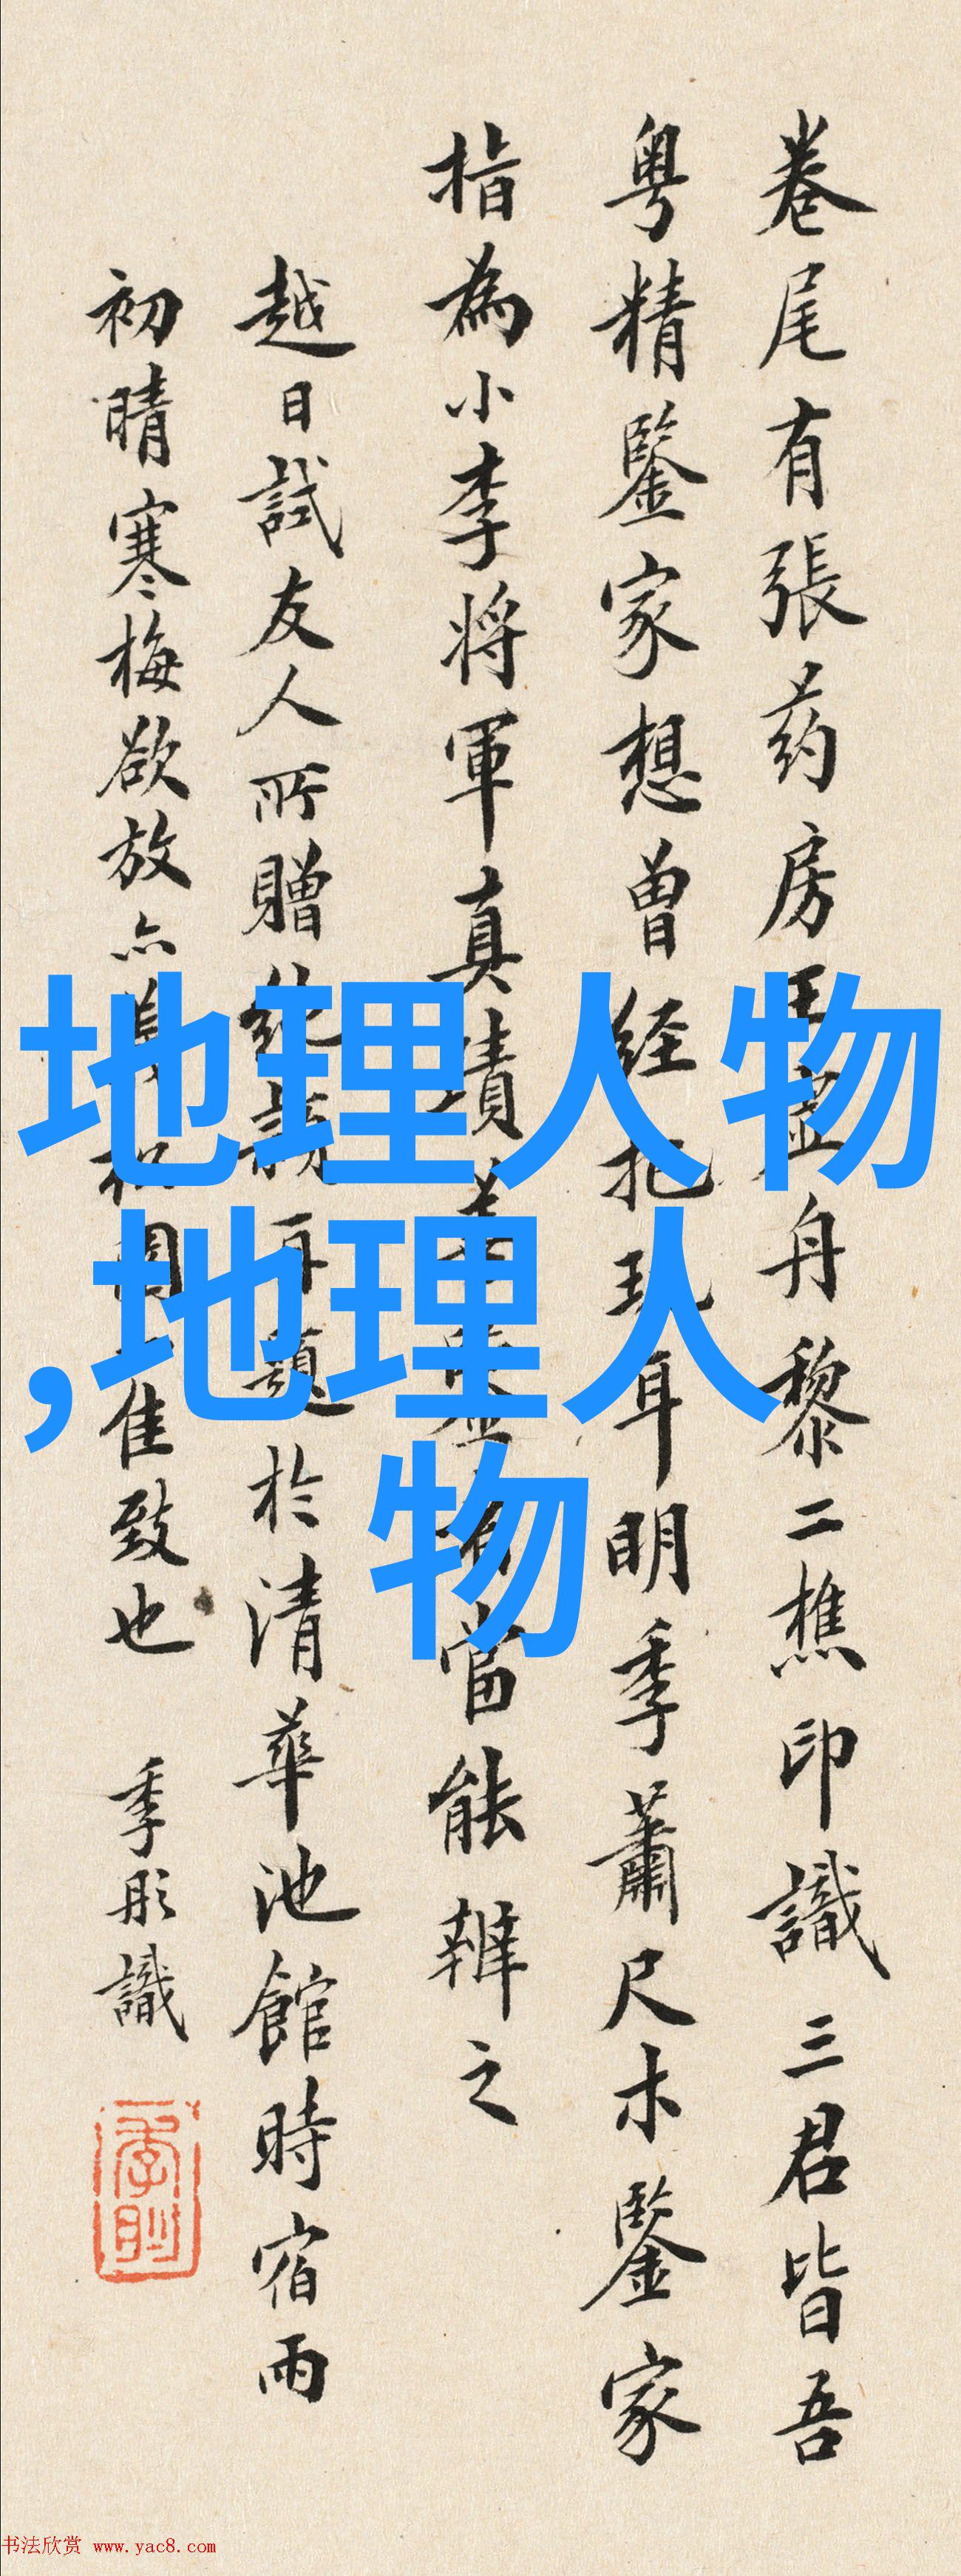 卷尾有張药房王虚舟黎二樵印識三君皆吾
粤精鑒家想曾经把玩耳明季蕭尺木鑒家
指為小李将軍真蹟
當能辨之
越日試友人所贈
再題於清華池館時宿雨
初晴寒梅欲放亦
佳致也 季彤識
地理人物
,地理人
物
书法欣赏 www.yac8.com